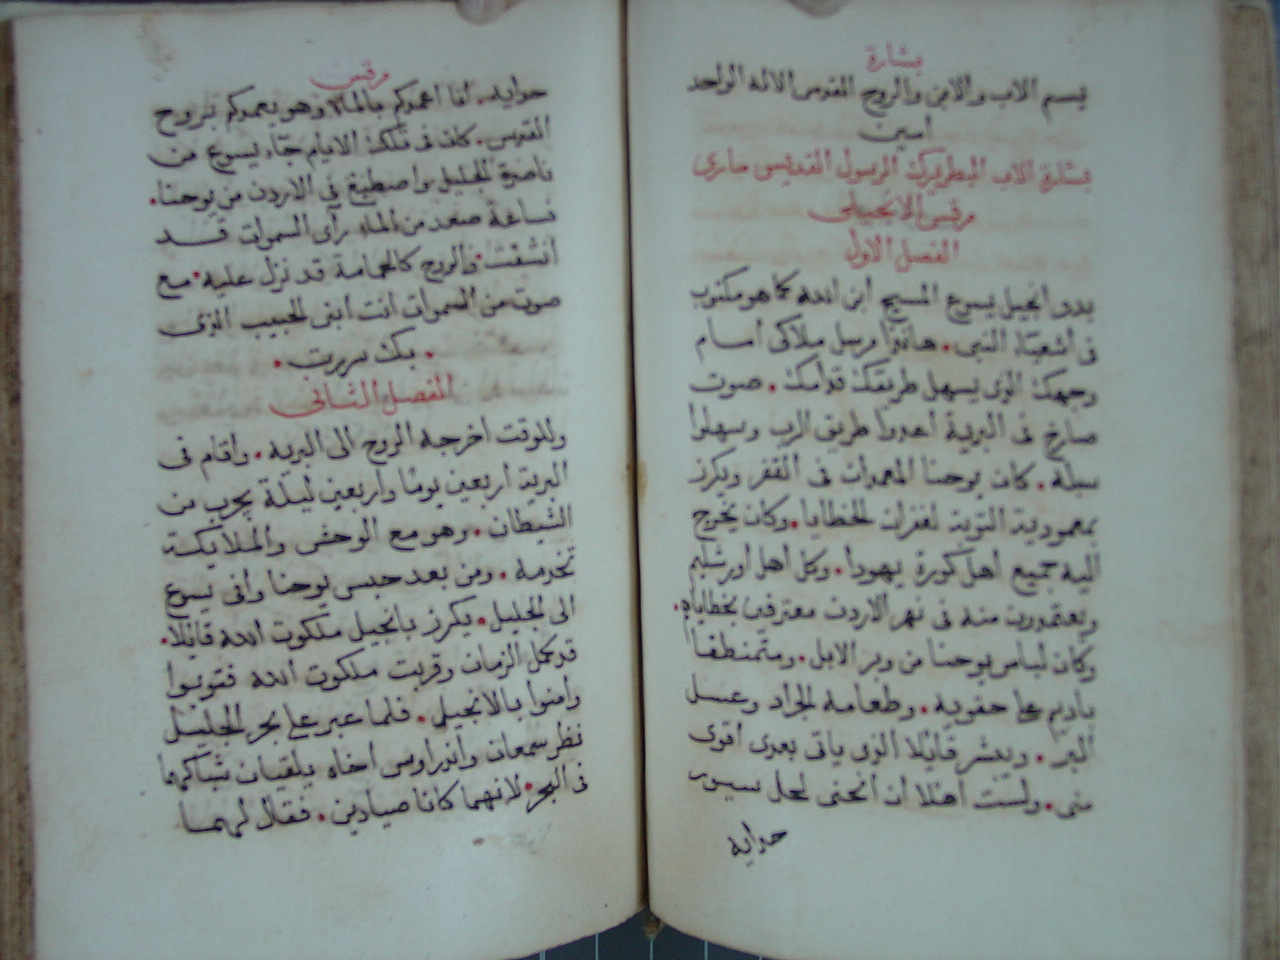 بشارة
بسم الاب والابن والروح القدس الاله الواحد
امين
بشارة الاب البطريرك الرسول القديس ماري
مرقس الانجيلي
الفصل الاول
بدو انجيل يسوع المسيح ابن الله كما هو مكتوب
فى اشعياء النبى. هانذا مرسل ملاكى امام
وجهك الذى يسهل طريقك قدامك. صوت
صارخ فى البرية اعدوا طريق الرب وسهلوا
سبله. كان يوحنا المعمدان فى القفر ويكرز
بمعمودية التوبة لغفران الخطايا. وكان يخرج
اليه جميع اهل كورة يهودا. وكل اهل اورشليم
ويعتمدون منه فى نهر الاردن معترفين بخطاياهم.
وكان لباس يوحنا من وبر الابل. ومتمنطقا
باديم على حقويه. وطعامه الجراد وعسل
البر. وبشر قايلا الذى ياتى بعدى اقوى
منى. ولست اهلا ان انحنى لحل سيور
حدايه
مرقس
حدايه. انا اعمدكم بالماء وهو يعمدكم بروح
القدس. كان فى تلك الايام جاء يسوع من
ناصرة الجليل واصطبغ فى الاردن من يوحنا.
فساعة صعد من الماء راى السموات قد
انشقت والروح كالحمامة قد نزل عليه. مع
صوت من السموات انت ابنى الحبيب الذى
بك سررت.
الفصل الثانى
وللوقت اخرجه الروح الى البرية. واقام فى
البرية اربعين يوما واربعين ليلة يجرب من
الشيطان. وهو مع الوحش والملايكة
تخدمه. ومن بعد حبس يوحنا وافى يسوع
الى الجليل. يكرز بانجيل ملكوت الله قايلا.
قد كمل الزمان وقربت ملكوت الله فتوبوا
وامنوا بالانجيل. فلما عبر على بحر الجليل
نظر سمعان واندراوس اخاه يلقيان شباكهما
فى البحر. لانهما كانا صيادين. فقال لهما